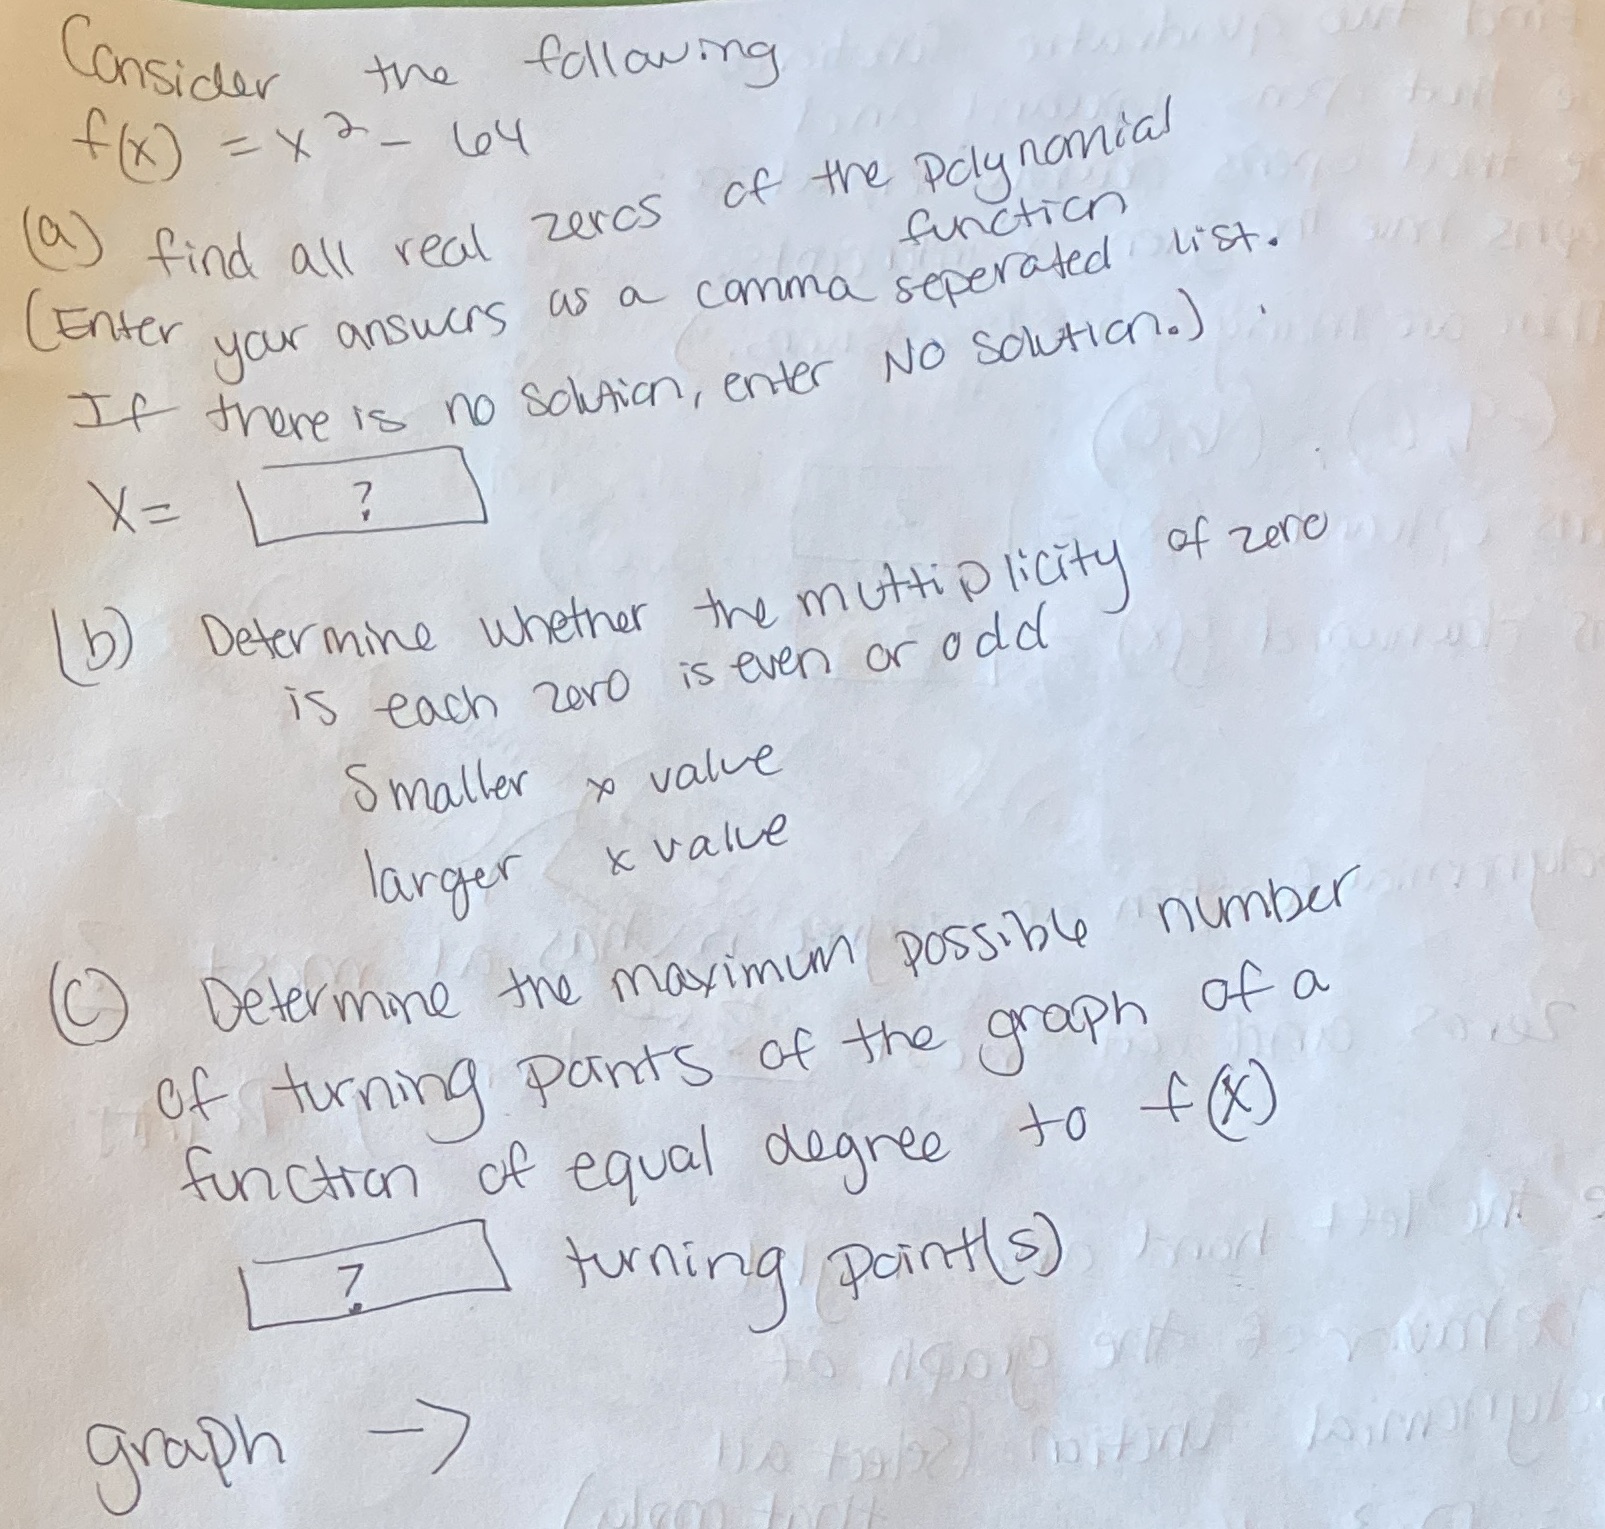 Consider the following
f(x) = x² - 64
(a) find all real zeros of the polynomial
function
(Enter your answers as a comma seperated list.
If there is no solution, enter NO Solution.)
X= ?
(b) Determine whether the multiplicity of zero
is each zero is even or odd
Smaller x value
larger x value
(c) Determine the maximum possible number
of turning points of the graph of a
function of equal degree to f(x)
? turning point(s)
graph →